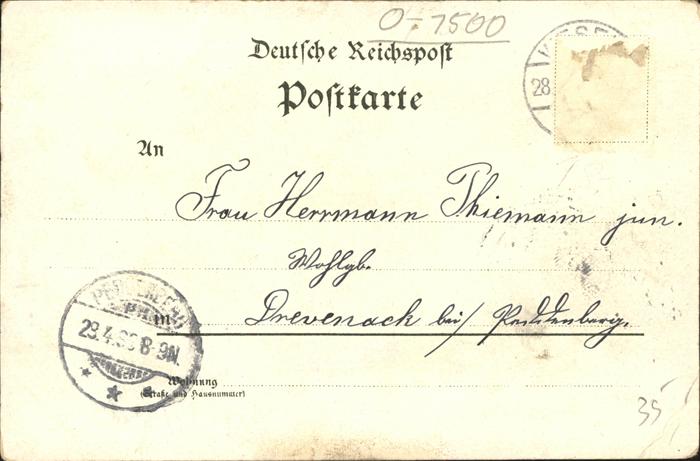 0-,1500
Deutſche Reichspoſt
Poſtkarte
WESE
28
An
Frau Herrmann Thiemann jun.
Wohlgb.
in Drevenack bei/ Peddenberg.
29.4.99 8-9N.
Wohnung
(Straße und Hausnummer)
35